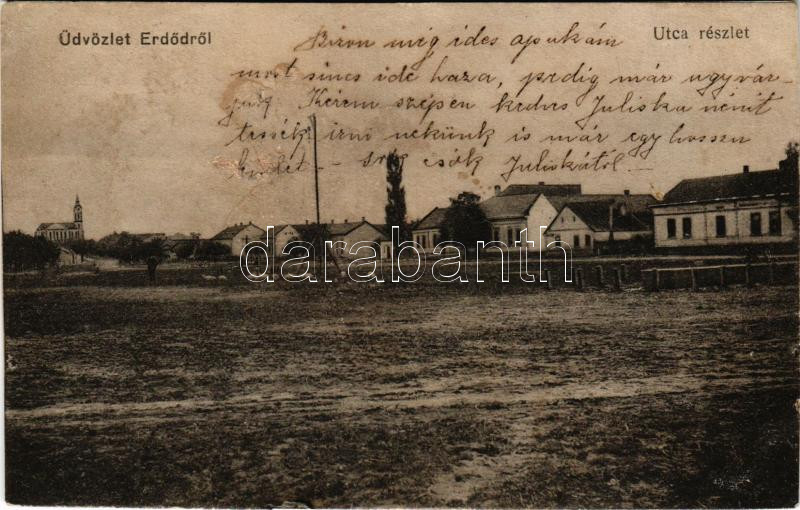 Üdvözlet Erdődről
Utca részlet
Bizon míg ides apukám
most sincs ide haza, pedig már úgy vár-
juk Kérem szépen kedves Juliska nénit
tessék irni nekünk is már egy hosszu
levelet – sok csók Juliskától.–
darabanth